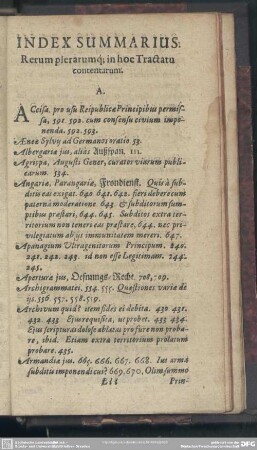 INDEX SUMMARIUS:
Rerum plerarumq; in hoc Tractatu
contentarum.
A.
ACcisa, pro usu Reipublicæ Principibus permis-
sa, 591. 592. cum consensu civium impo-
nenda. 592. 593.
Æneæ Sylvij ad Germanos oratio 53.
Albergariæ jus, aliàs 111.
Agrippa, Augusti Gener, curator viarum publi-
carum. 534.
Angariæ, Parangariæ, Frondienst. Quis à subdi-
tis eas exigat. 640. 641. 642. fieri debere cum
paterna moderatione. 643. & subditorum sum-
ptibus præstari, 644. 645. Subditos extra ter-
ritorium non teneri eas præstare, 644. nec pri-
vilegiatum ab ijs immunitatem mereri. 647.
Apanagium Ultragenitorum Principum. 240.
241. 242. 243. id non esse Legitimam. 244.
245.
Aperturæ jus, Oefnungs-Recht. 708. 709.
Archigrammatei, 554. 555. Quæstiones variæ de
ijs. 556. 557. 558. 519.
Archivum quid? item fides ei debita. 430. 431.
432. 433. Ejus requisita, ut probet. 433. 434.
Ejus scripturas dolosè ablatas pro fure non proba-
re, ibid. Etiam extra territorium prolatum
probare. 435.
Armandiæ jus. 665. 666. 667. 668. Ius arma
subditis imponendi cui? 669. 670. Olim summo
Ell Prin-